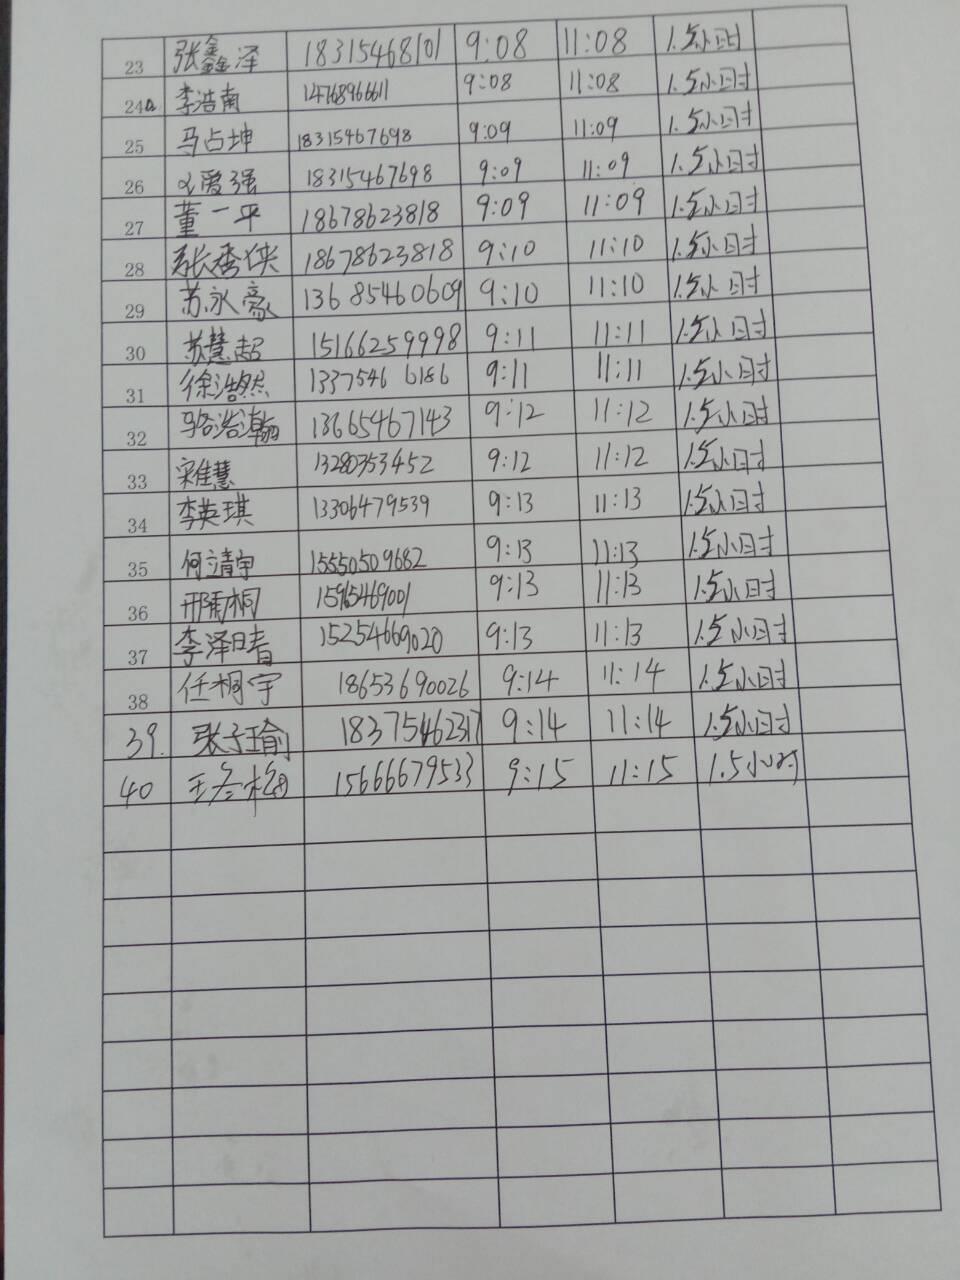 23 张鑫泽 18315468101 9:08 11:08 1.5小时
24 李浩南 14768966611 9:08 11:08 1.5小时
25 马占坤 18315467698 9:09 11:09 1.5小时
26 爱强 18315467698 9:09 11:09 1.5小时
27 董一平 18678623818 9:09 11:09 1.5小时
28 张秀侠 18678623818 9:10 11:10 1.5小时
29 苏永豪 13685460609 9:10 11:10 1.5小时
30 苏慧超 15166259998 9:11 11:11 1.5小时
31 徐浩然 1337546 6186 9:11 11:11 1.5小时
32 骆浩瀚 13665467143 9:12 11:12 1.5小时
33 宋维慧 13280353452 9:12 11:12 1.5小时
34 李英琪 13306479539 9:13 11:13 1.5小时
35 何靖宇 15550509682 9:13 11:13 1.5小时
36 邢雨桐 15965469001 9:13 11:13 1.5小时
37 李泽睛 15254669020 9:13 11:13 1.5小时
38 任桐宇 18653690026 9:14 11:14 1.5小时
39. 张子瑜 18375462317 9:14 11:14 1.5小时
40 王冬梅 15666679533 9:15 11:15 1.5小时